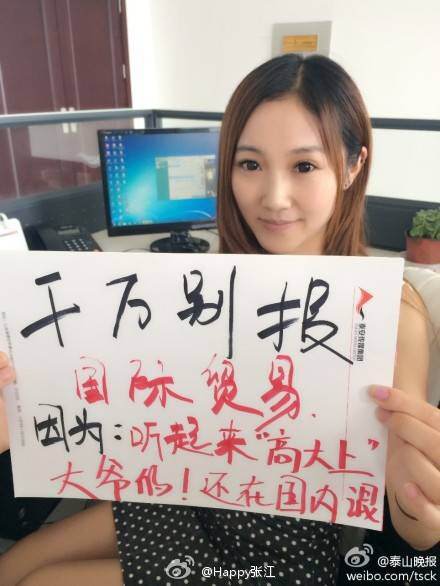 千万别报
国际贸易.
因为:听起来"高大上"
大爷的!还在国内混
泰安传媒集团
@Happy张江
@泰山晚报
weibo.com/tsck